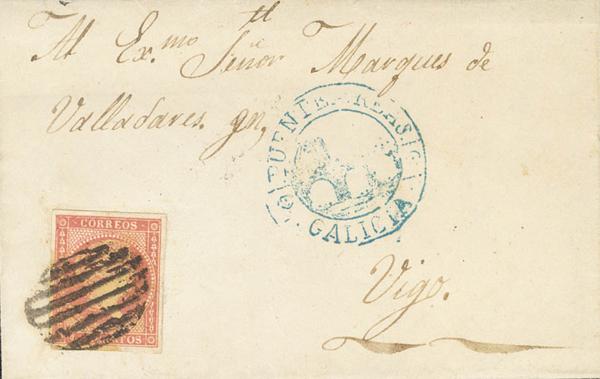 Al Ex.mo Señor Marques de
Valladares. gn,
PUENTE-AREAS.
GALICIA.
Vigo.
CORREOS